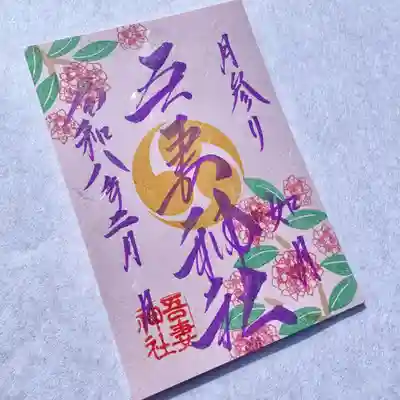 月参り
如月
吾妻神社
令和八年二月
吾妻
神社